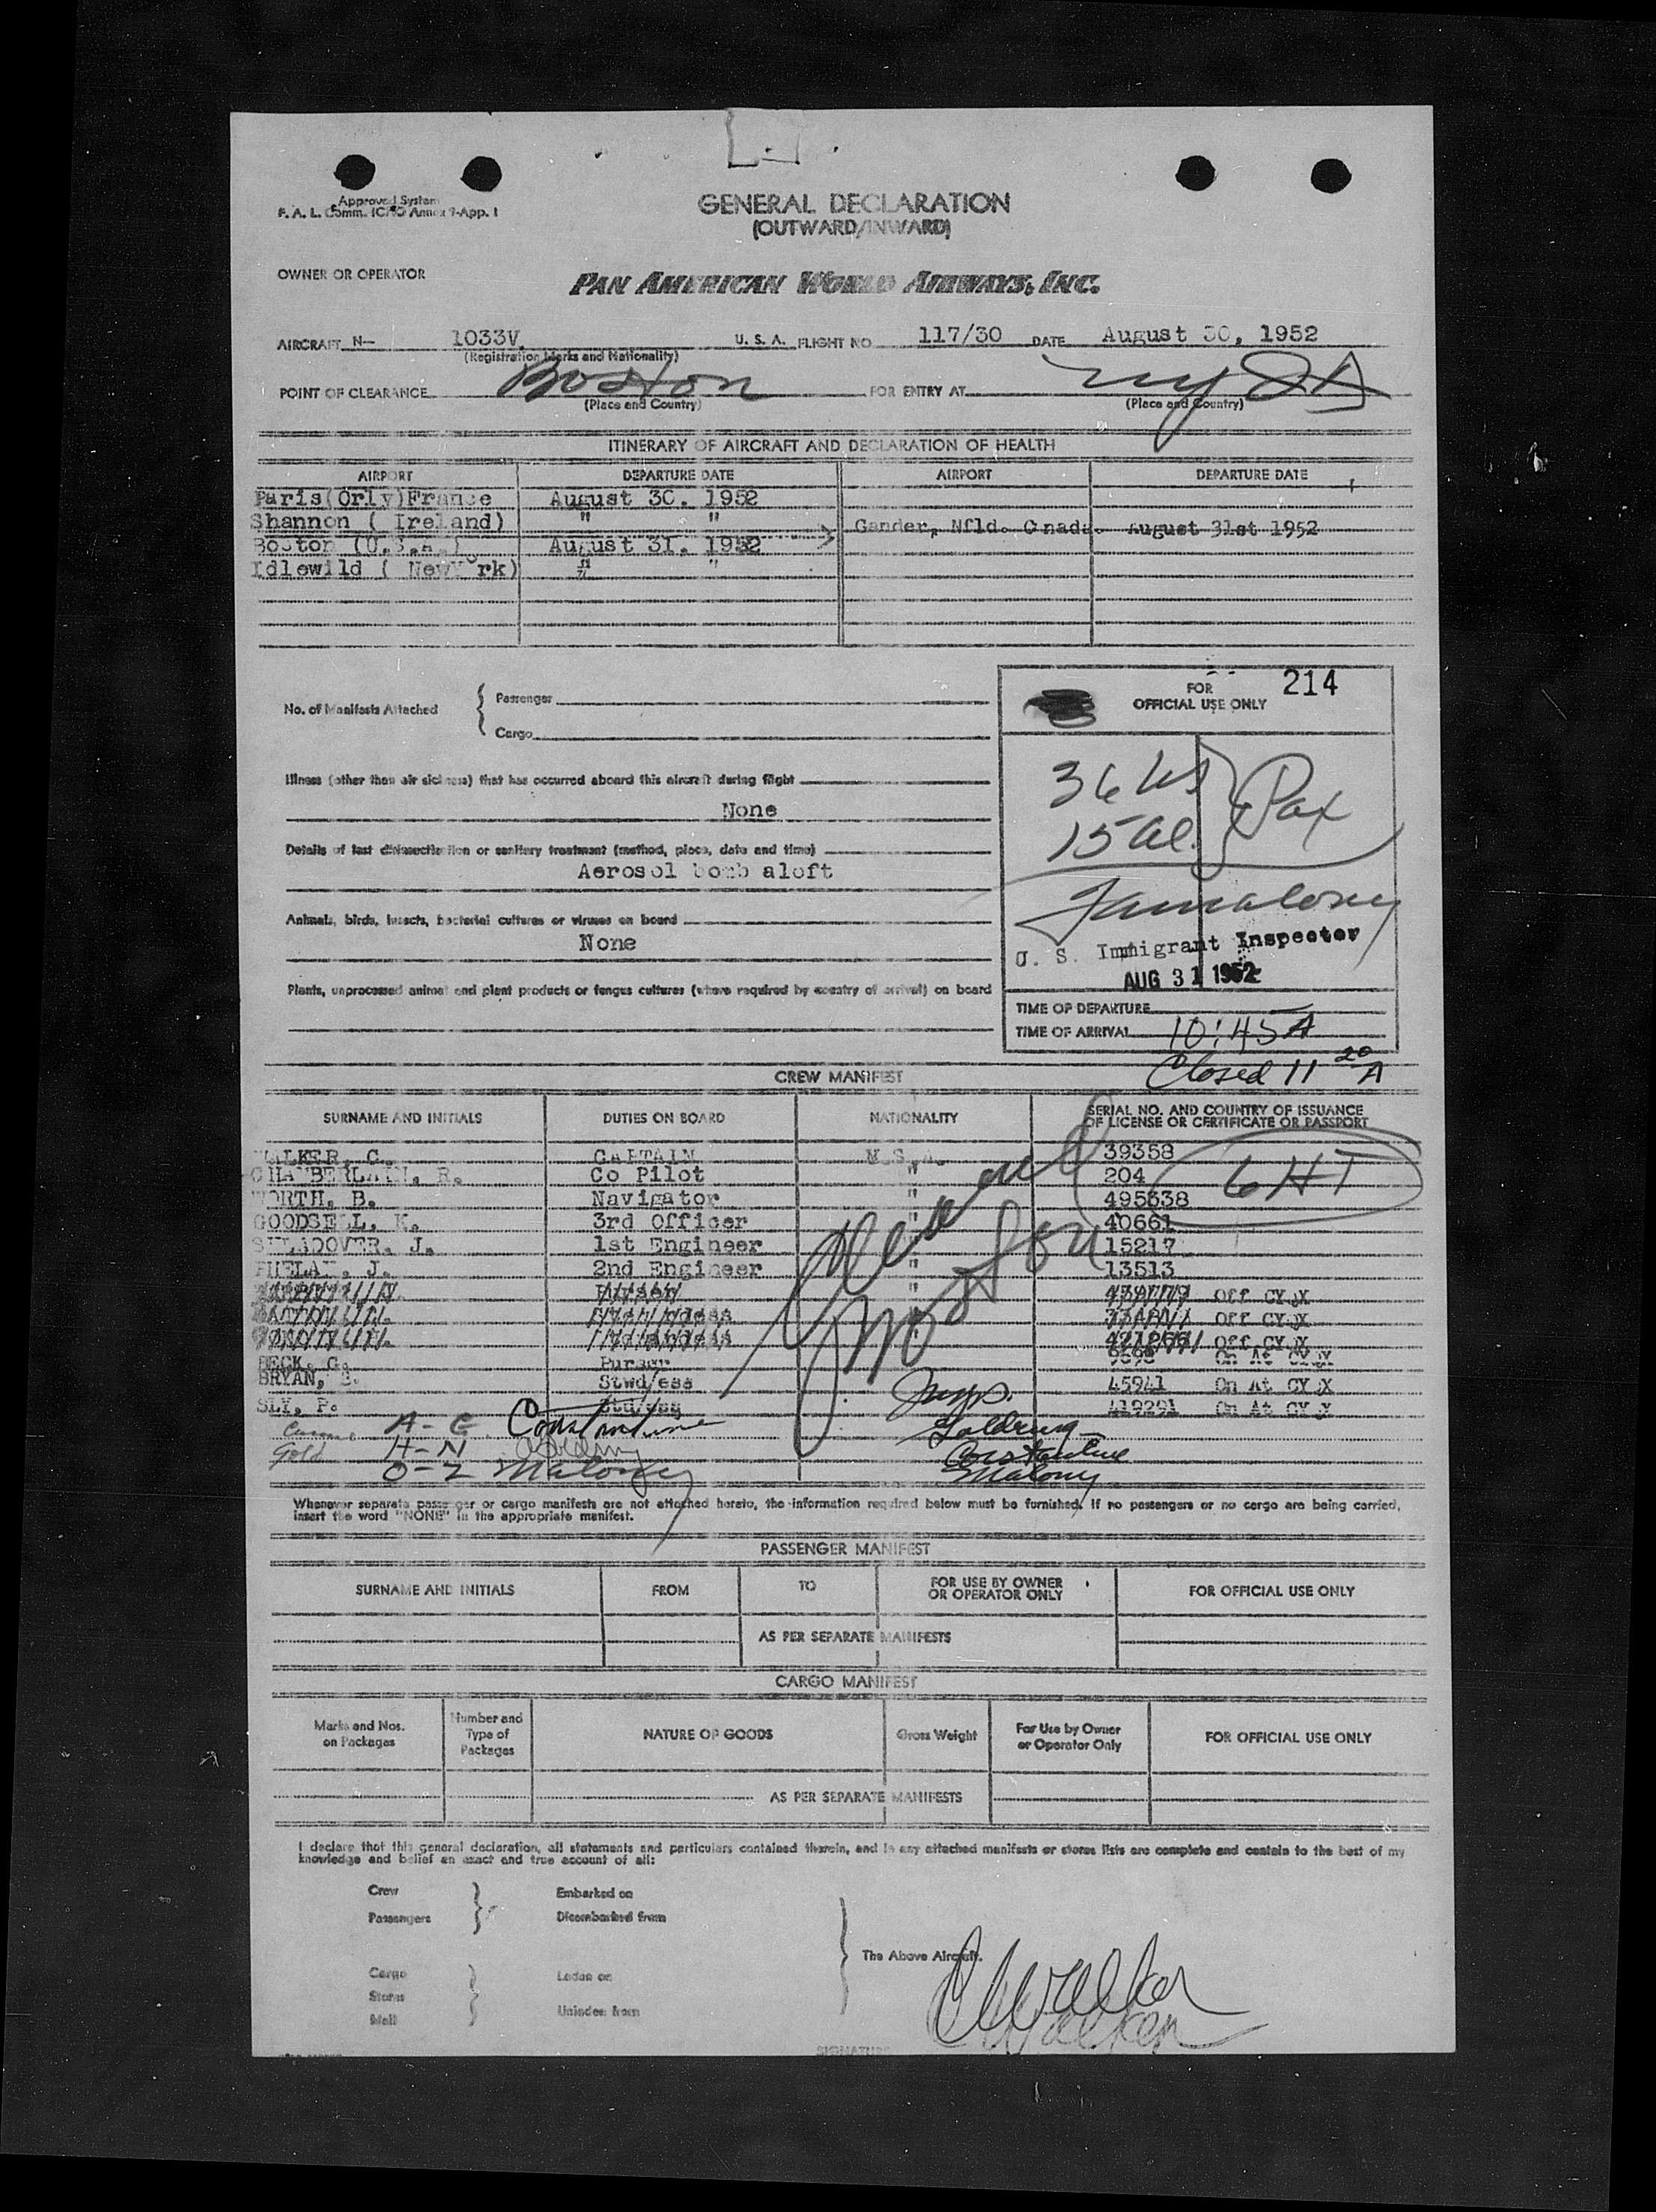 Approved System
F. A. L. Comm. ICAO Annex 9-App. 1
GENERAL DECLARATION
(OUTWARD/INWARD)
OWNER OR OPERATOR PAN AMERICAN WORLD AIRWAYS, INC.
AIRCRAFT N- 1033V U. S. A. FLIGHT NO. 117/30 DATE August 30, 1952
(Registration Marks and Nationality)
POINT OF CLEARANCE Boston FOR ENTRY AT
(Place and Country) (Place and Country)
ITINERARY OF AIRCRAFT AND DECLARATION OF HEALTH
AIRPORT DEPARTURE DATE AIRPORT DEPARTURE DATE
Paris(Orly)France August 30. 1952
Shannon ( Ireland) " " Gander, Nfld. Cnada. August 31st 1952
Boston (U.S.A.) August 31. 1952
Idlewild ( NewYork) " "
214
FOR
OFFICIAL USE ONLY
No. of Manifests Attached { Passenger
Cargo
36 US
15 al. } Pax
Illness (other than air sickness) that has occurred aboard this aircraft during flight
None
Details of last disinsectization or sanitary treatment (method, place, date and time)
Aerosol bomb aloft
Animals, birds, insects, bacterial cultures or viruses on board
None
U. S. Immigrant Inspector
AUG 31 1952
Plants, unprocessed animal and plant products or fungus cultures (where required by country of arrival) on board
TIME OF DEPARTURE
TIME OF ARRIVAL 10:45A
Closed 11 20 A
CREW MANIFEST
SURNAME AND INITIALS DUTIES ON BOARD NATIONALITY SERIAL NO. AND COUNTRY OF ISSUANCE
OF LICENSE OR CERTIFICATE OR PASSPORT
WALKER, C. CAPTAIN U.S.A. 39358
CHAMBERLAIN, R. Co Pilot " 204
WORTH, B. Navigator " 495638
GOODSELL, K. 3rd Officer " 40661
J. 1st Engineer " 15217
PHELAN, J. 2nd Engineer " 13513
6HT
Purser Off CYQX
Off CYQX
Off CYQX
BECK, G. Purser 9898 On At CYQX
BRYAN, Stwd/ess 45941 On At CYQX
SLY, P. Std/ess 419291 On At CYQX
Boston
A-G Constantine Goldring
Gold H-N Constantine
O-Z Malony Malony
Whenever separate passenger or cargo manifests are not attached hereto, the information required below must be furnished. If no passengers or no cargo are being carried,
insert the word "NONE" in the appropriate manifest.
PASSENGER MANIFEST
SURNAME AND INITIALS FROM TO FOR USE BY OWNER
OR OPERATOR ONLY FOR OFFICIAL USE ONLY
AS PER SEPARATE MANIFESTS
CARGO MANIFEST
Marks and Nos.
on Packages Number and
Type of
Packages NATURE OF GOODS Gross Weight For Use by Owner
or Operator Only FOR OFFICIAL USE ONLY
AS PER SEPARATE MANIFESTS
I declare that this general declaration, all statements and particulars contained therein, and in any attached manifests or stores lists are complete and contain to the best of my
knowledge and belief an exact and true account of all:
Crew Embarked on
Passengers Disembarked from
The Above Aircraft.
Cargo Laden on
Stores
Mail Unladen from
C Walker
Walker
SIGNATURE